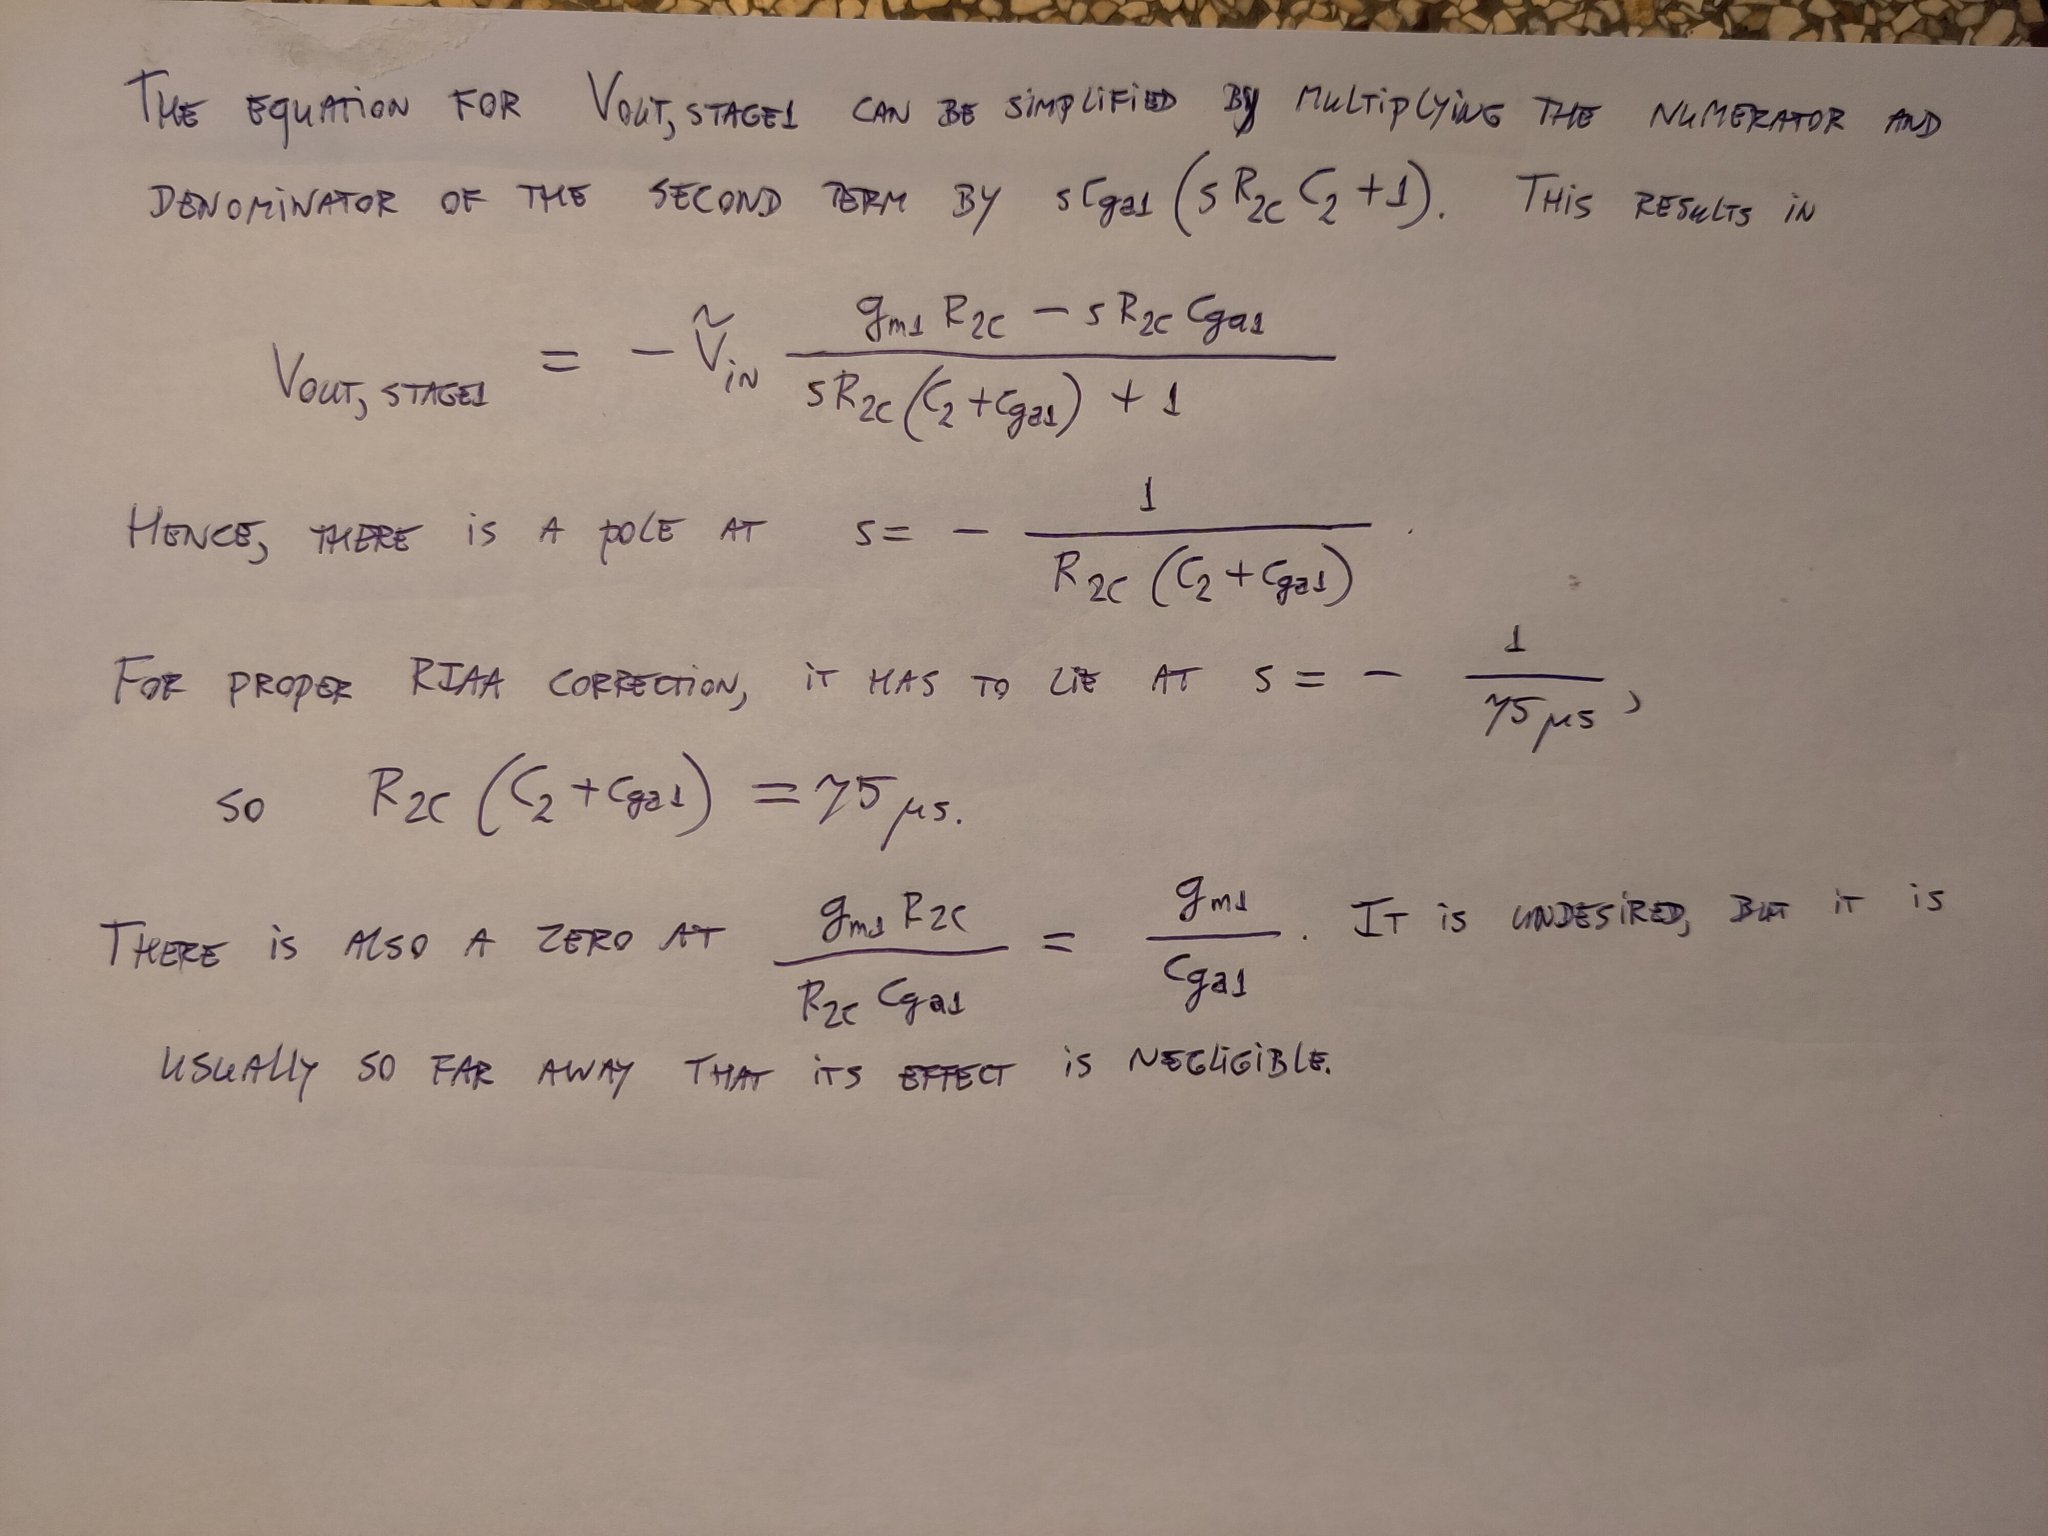 THE EQUATION FOR Vout, STAGE1 CAN BE SIMPLIFIED BY MULTIPLYING THE NUMERATOR AND
DENOMINATOR OF THE SECOND TERM BY sCga1 (sR2C C2 + 1). THIS RESULTS IN
Vout, STAGE1 = - Ṽin (gm1 R2C - sR2C Cga1) / (sR2C (C2 + Cga1) + 1)
HENCE, THERE IS A POLE AT s = - 1 / (R2C (C2 + Cga1)).
FOR PROPER RIAA CORRECTION, IT HAS TO LIE AT s = - 1 / 75 μs,
SO R2C (C2 + Cga1) = 75 μs.
THERE IS ALSO A ZERO AT gm1 R2C / R2C Cga1 = gm1 / Cga1. IT IS UNDESIRED, BUT IT IS
USUALLY SO FAR AWAY THAT ITS EFFECT IS NEGLIGIBLE.